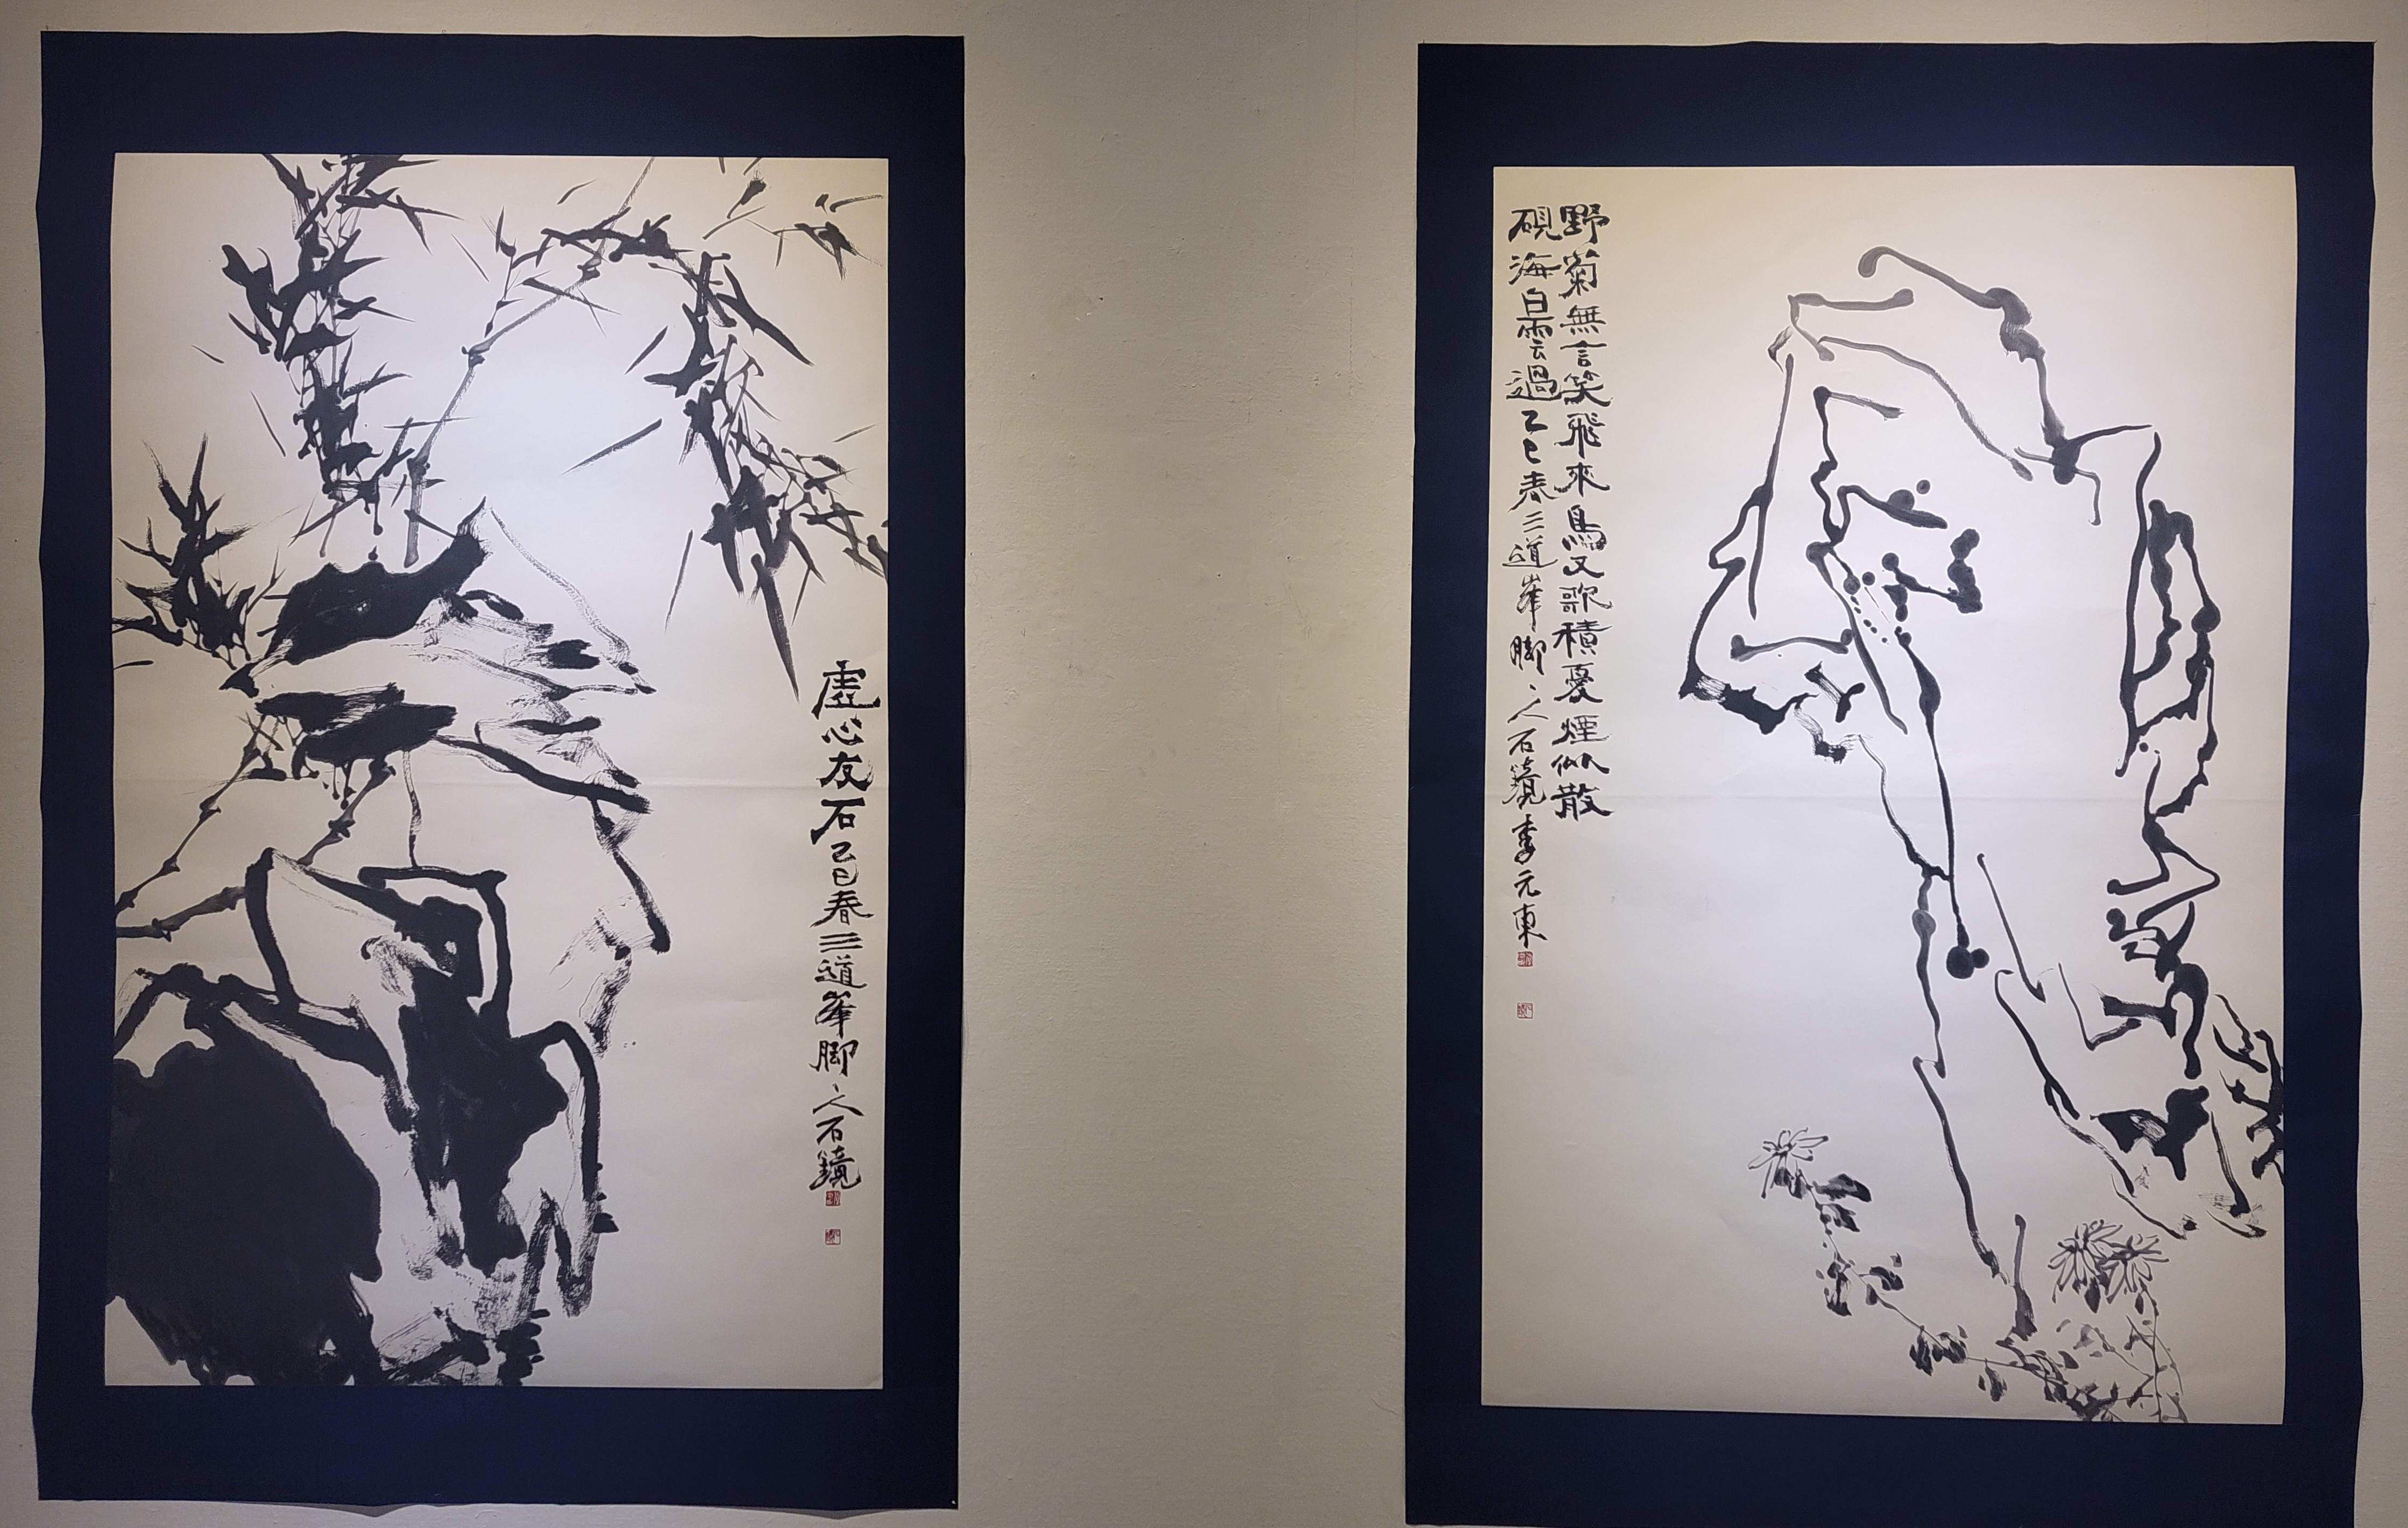 虛心友石乙巳春三道峯腳丶人石鏡
野菊無言笑飛來鳥又歌積憂煙似散
硯海白雲過乙巳春三道峯腳丶人石鏡李元東